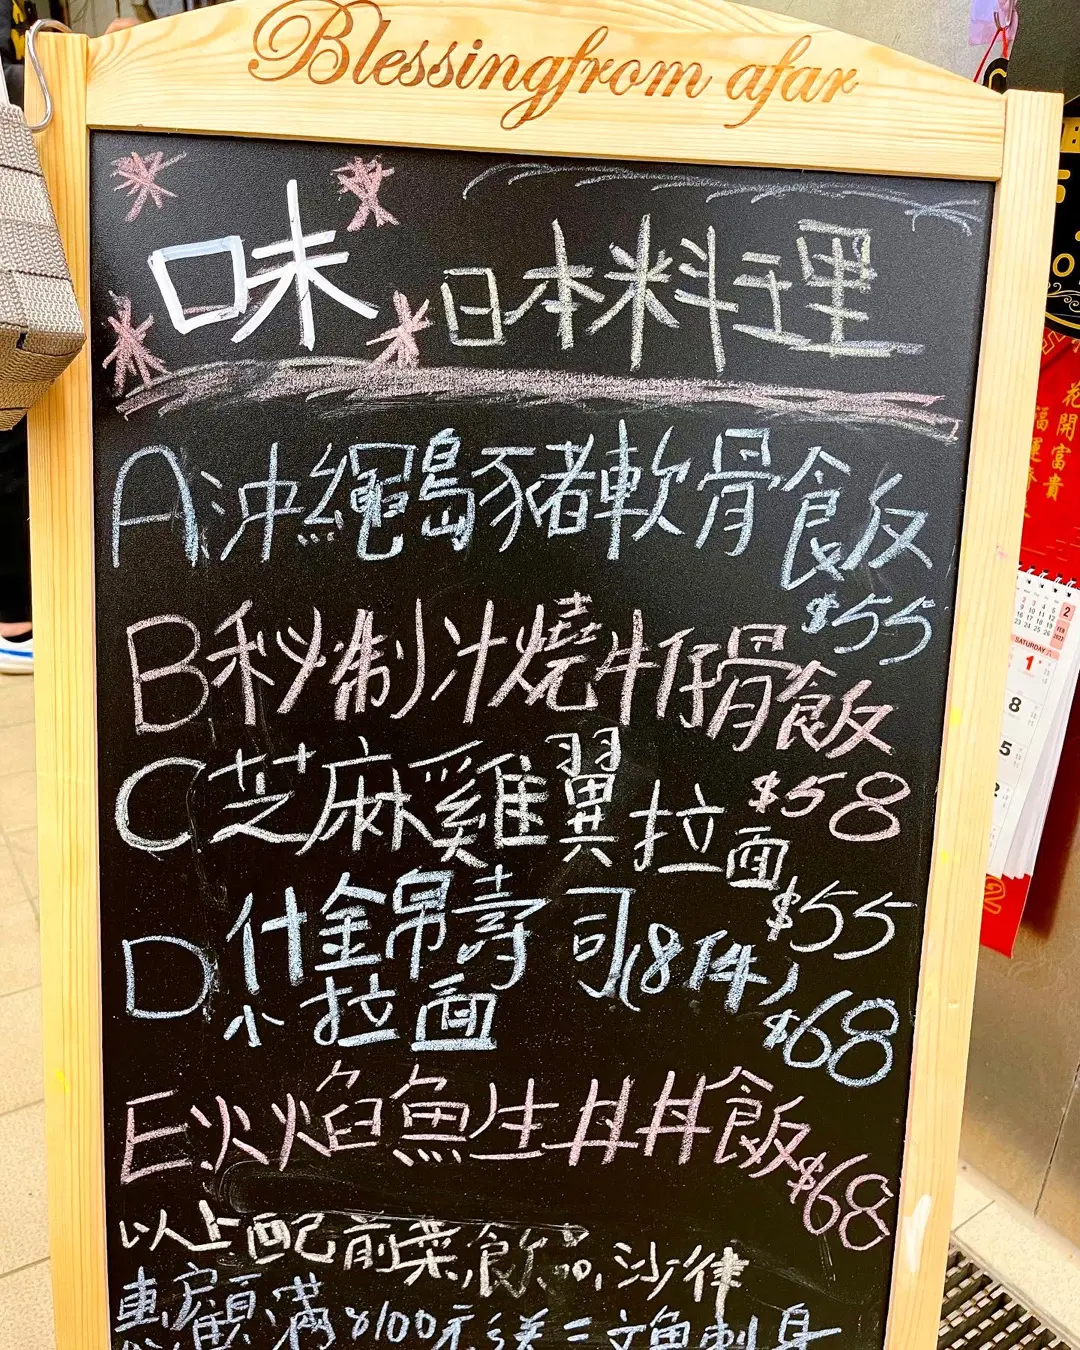 Blessingfrom afar
味 日本料理
A沖繩島豬軟骨飯
$55
B秘制汁燒牛仔骨飯
$58
C芝麻雞翼拉面
$55
D什錦帛壽司(8件)
小拉面
$68
E火焰魚生丼丼飯
$68
以上配前菜,飲品,沙律
惠顧滿$100元送三文魚刺身
花開富貴
福運
SATURDAY 六
1
8